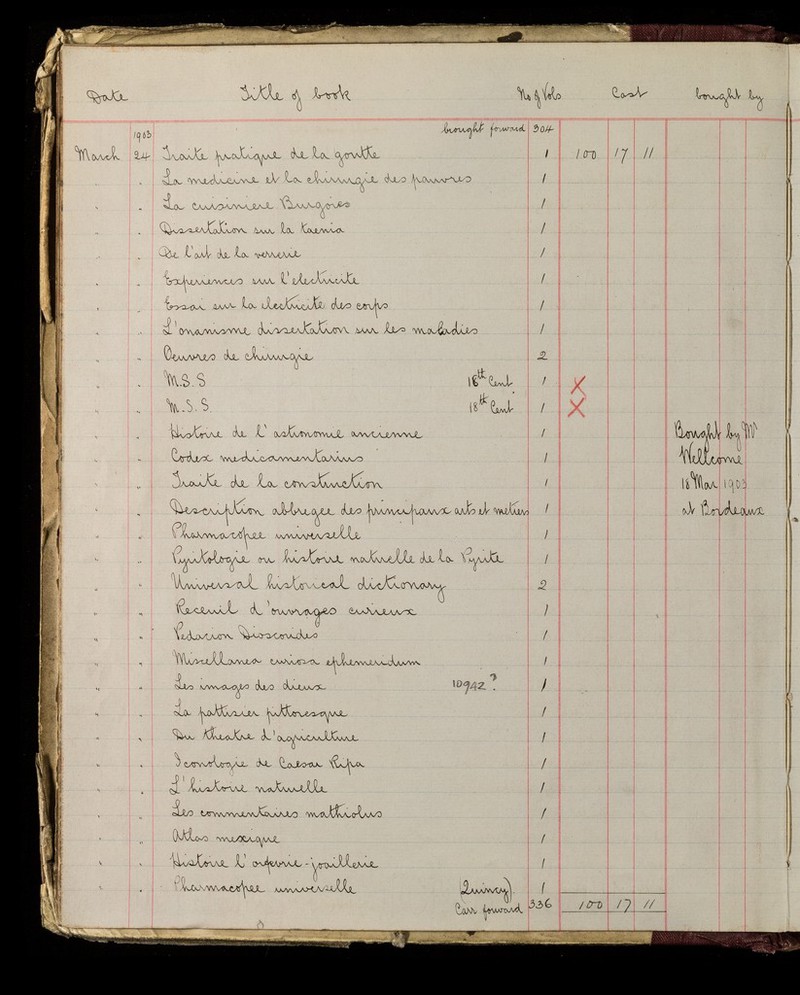 Date Title of book No of Vols Cost bought by
1903 brought forward 304
March 24 Traite pratique de la goutte 1 100 17 11
" La medicine et la chirurgie des pauvres 1
" " La cuisiniere Burgoies 1
" " Dissertation sur la taenia 1
" " De l'art de la verrerie 1
" " Experiences sur l'electricite 1
" " Essai sur la electricite des corps 1
" " L'onanisme dissertation sur les maladies 1
" " Oeuvres de chirurgie 2
" " M.S.S 16th Cent 1 X
" " M.S.S. 18th Cent 1 X
" " Histoire de l'astronomie ancienne 1 Bought by Mr
" " Codex medicamentarius 1 Wellcome
" " Traite de la construction 1 18 Mar 1903
" " Description abbregee des principaux arts et metiers 1 at Bordeaux
" " Pharmacopee universelle 1
" " Pyritologie ou histoire naturelle de la Pyrite 1
" " Universal historical dictionary 2
" " Receuil d'ouvrages curieux 1
" " Pedacion Dioscorides 1
" " Miscellanea curiosa ephemeridum 1
" " Les images des dieux 10942? 1
" " La pattisier pittoresque 1
" " Du theatre d'agriculture 1
" " Iconologie de Caesar Ripa 1
" " L'histoire naturelle 1
" " Les commentaires mathiolus 1
" " Atlas mexique 1
" " Histoire l'orfevrie-joaillerie 1
" " Pharmacopee universelle Quincy) 1
Carr forward 336 100 17 11